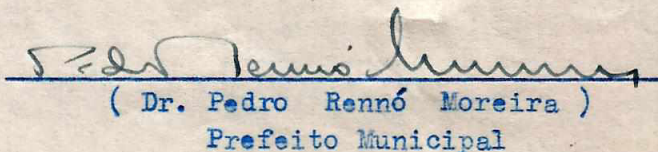 Pedro Rennó Moreira
( Dr. Pedro Rennó Moreira )
Prefeito Municipal